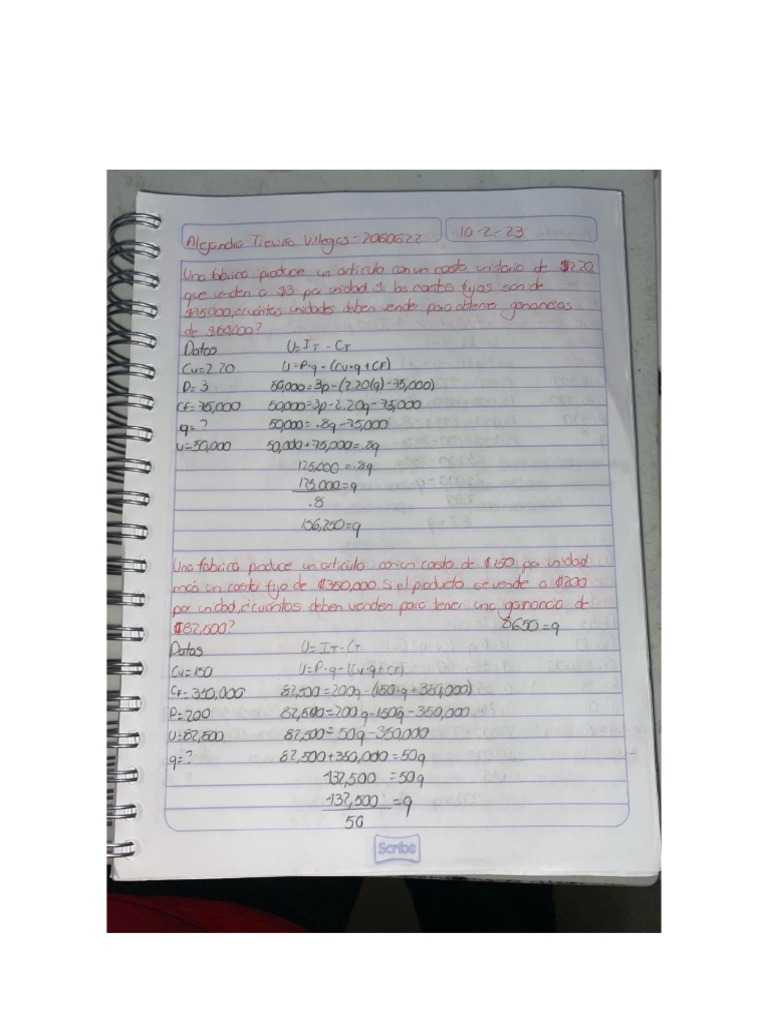 Alejandra Treviño Villegas - 2060622 10-2-23
Una fabrica produce un articulo con un costo unitario de $2.20
que venden a $3 por unidad si los costos fijos son de
$75000, ¿cuántas unidades deben vender para obtener ganancias
de $50,000?
Datos U=IT-CT
Cu=2.20 U=P·q-(Cu·q+CF)
P=3 50,000=3p-(2.20(q)-75,000)
CF=75,000 50,000=3p-2.20q-75,000
q=? 50,000=.8q-75,000
U=50,000 50,000+75,000=.8q
125,000=.8q
125,000=q
.8
156,250=q
Una fabrica produce un articulo con un costo de $150 por unidad
más un costo fijo de $350,000 si el producto se vende a $200
por unidad, ¿cuántos deben venden para tener una ganancia de
$82,500? 8650=q
Datos U=IT-CT
Cu=150 U=P·q-(Cu·q+CF)
CF=350,000 82,500=200q-(150·q+350,000)
P=200 82,500=200q-150q-350,000
U=82,500 82,500=50q-350,000
q=? 82,500+350,000=50q
432,500=50q
432,500=q
50
Scribe